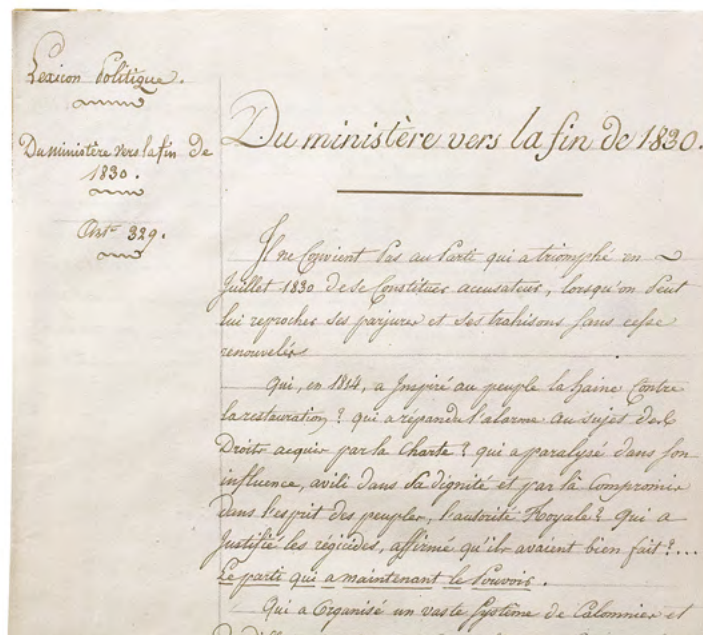 Lexicon Politique.
Du ministère vers la fin de
1830.
Art. 329.
Du ministère vers la fin de 1830.
Il ne Convient Pas au Parti qui a triomphé en
Juillet 1830 de se Constituer accusateur, lorsqu'on Peut
lui reprocher ses parjures et ses trahisons sans cesse
renouvelés
Qui, en 1814, a Inspiré au peuple la haine Contre
la restauration ? qui a répandu l'alarme au sujet des
Droits acquis par la Charte ? qui a paralysé dans son
influence, avili dans sa dignité et par là Compromis
dans l'esprit des peuples, l'autorité Royale ? Qui a
Justifié les régicides, affirmé qu'ils avaient bien fait ?...
Le parti qui a maintenant le Pouvoir.
Qui a Organisé un vaste Système de Calomnies et